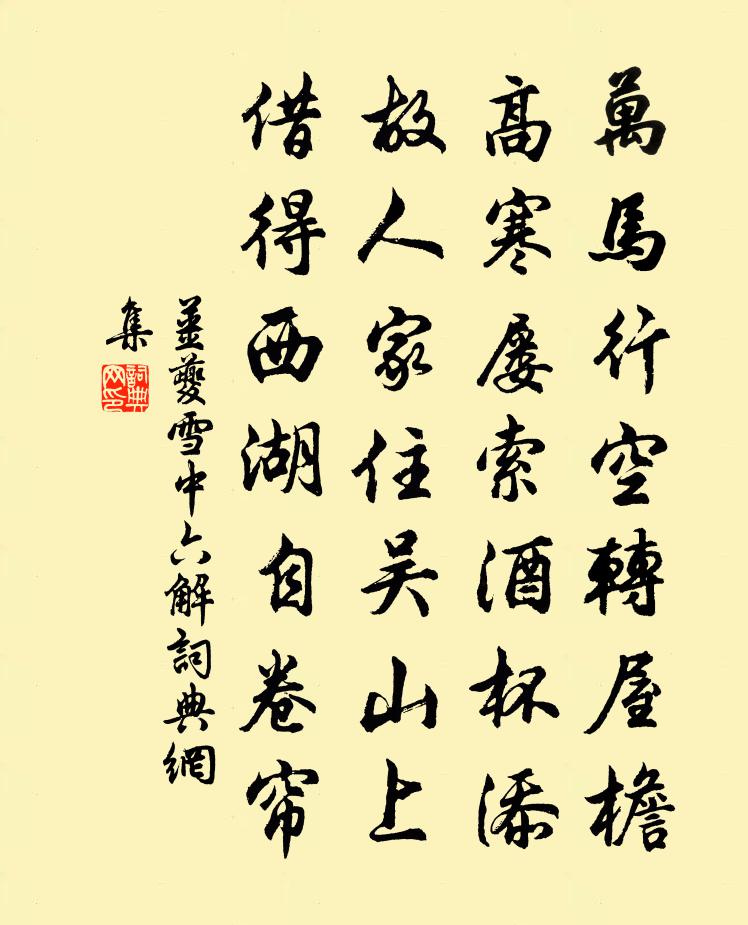 萬馬行空轉屋檐
高寒屡索酒杯添
故人家住吴山上
借得西湖自卷帘
姜夔雪中六解詞典網
集
詞典
网印